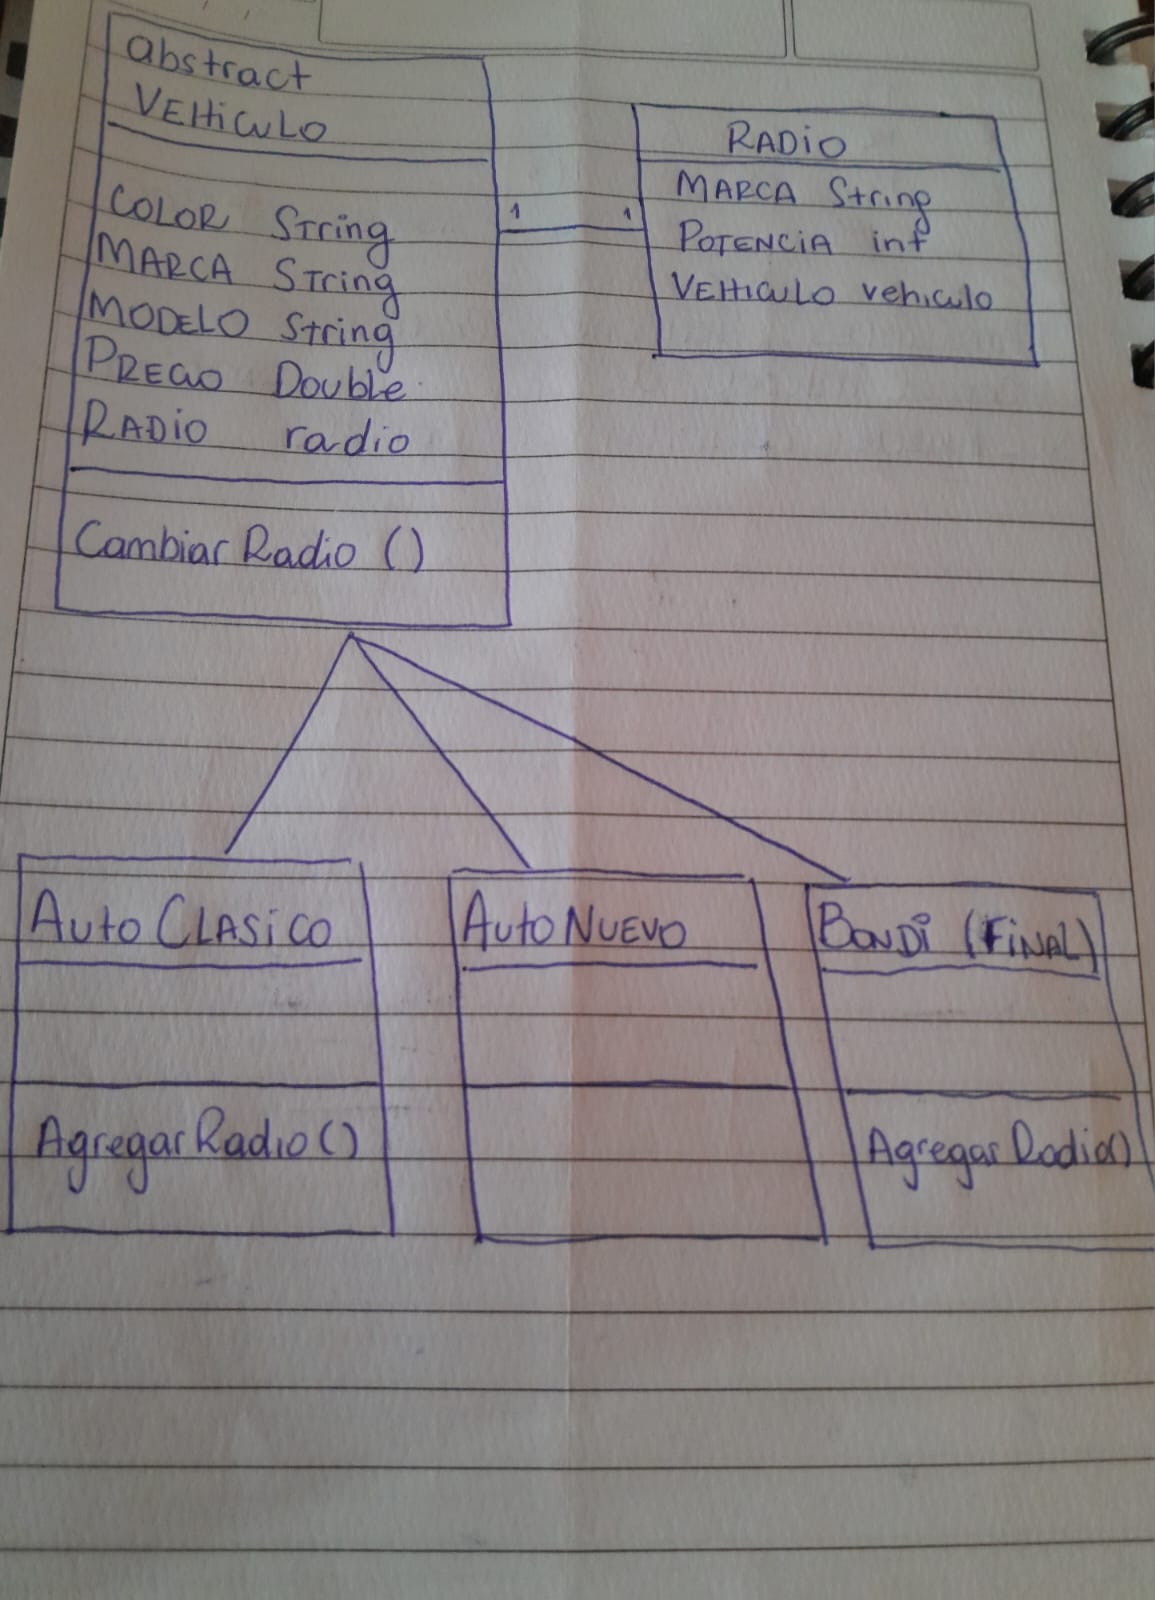 abstract
VEHiCULO
COLOR String
MARCA String
MODELO String
PRECiO Double
RADiO radio
Cambiar Radio ()
1 1
RADiO
MARCA String
POTENCiA int
VEHiCULO vehiculo
Auto CLASiCO
Agregar Radio ()
Auto NUEVO
BONDi (FiNAL)
Agregar Radio()